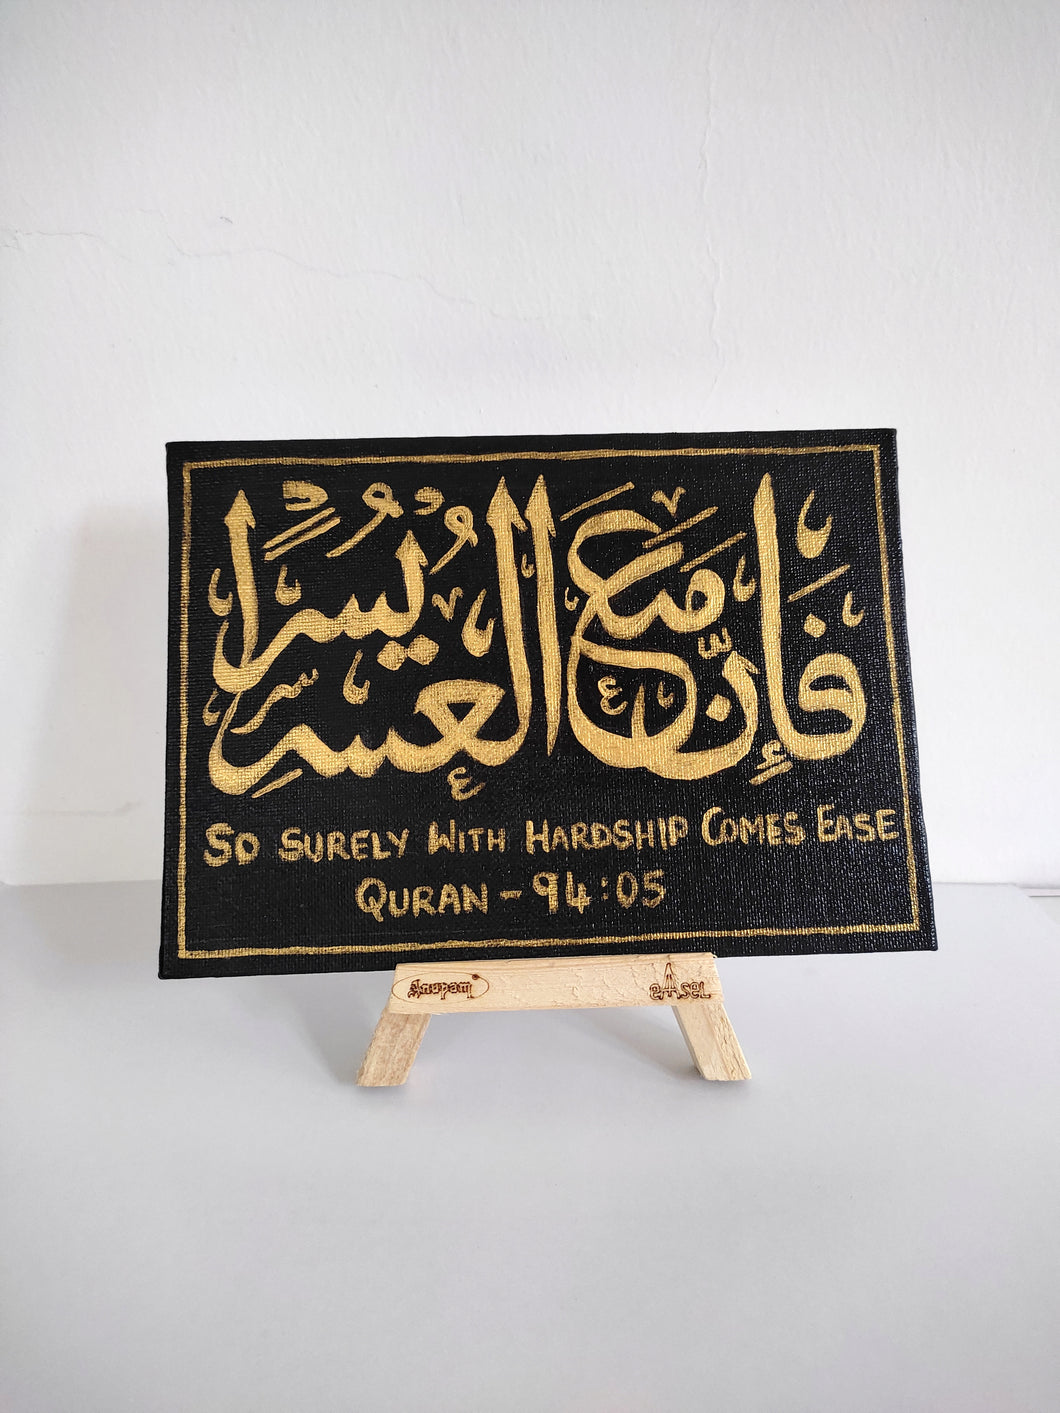 فَإِنَّ مَعَ الْعُسْرِ يُسْرًا
SO SURELY WITH HARDSHIP COMES EASE
QURAN - 94:05
Anupam
eAsel